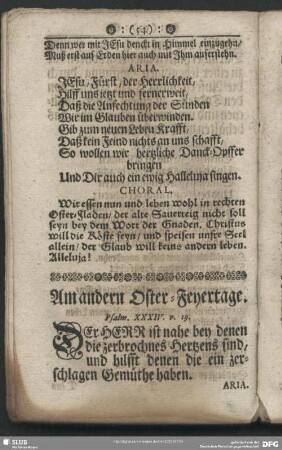 : (54) :
Denn wer mit JEsu denckt in Himmel einzugehn/
Muß erst auf Erden hier auch mit Ihm auferstehn.
ARIA.
JEsu, Fürst, der Herrlichkeit,
Hilff uns jetzt und fernerweit,
Daß die Anfechtung der Sünden
Wir im Glauben überwinden.
Gib zum neuen Leben Krafft,
Daß kein Feind nichts an uns schafft,
So wollen wir hertzliche Danck-Opffer
bringen
Und Dir auch ein ewig Halleluja singen.
CHORAL,
Wir essen nun und leben wohl in rechten
Oster-Fladen, der alte Sauerteig nicht soll
seyn bey dem Wort der Gnaden, Christus
will die Köste seyn, und speisen unsre Seel
allein, der Glaub will keins andern leben.
Alleluja!
Am andern Oster-Feyertage.
Psalm. XXXIV. v. 19.
DEr HERR ist nahe bey denen
die zerbrochnes Hertzens sind,
und hilfft denen die ein zer-
schlagen Gemüthe haben.
ARIA.
SLUB
DFG